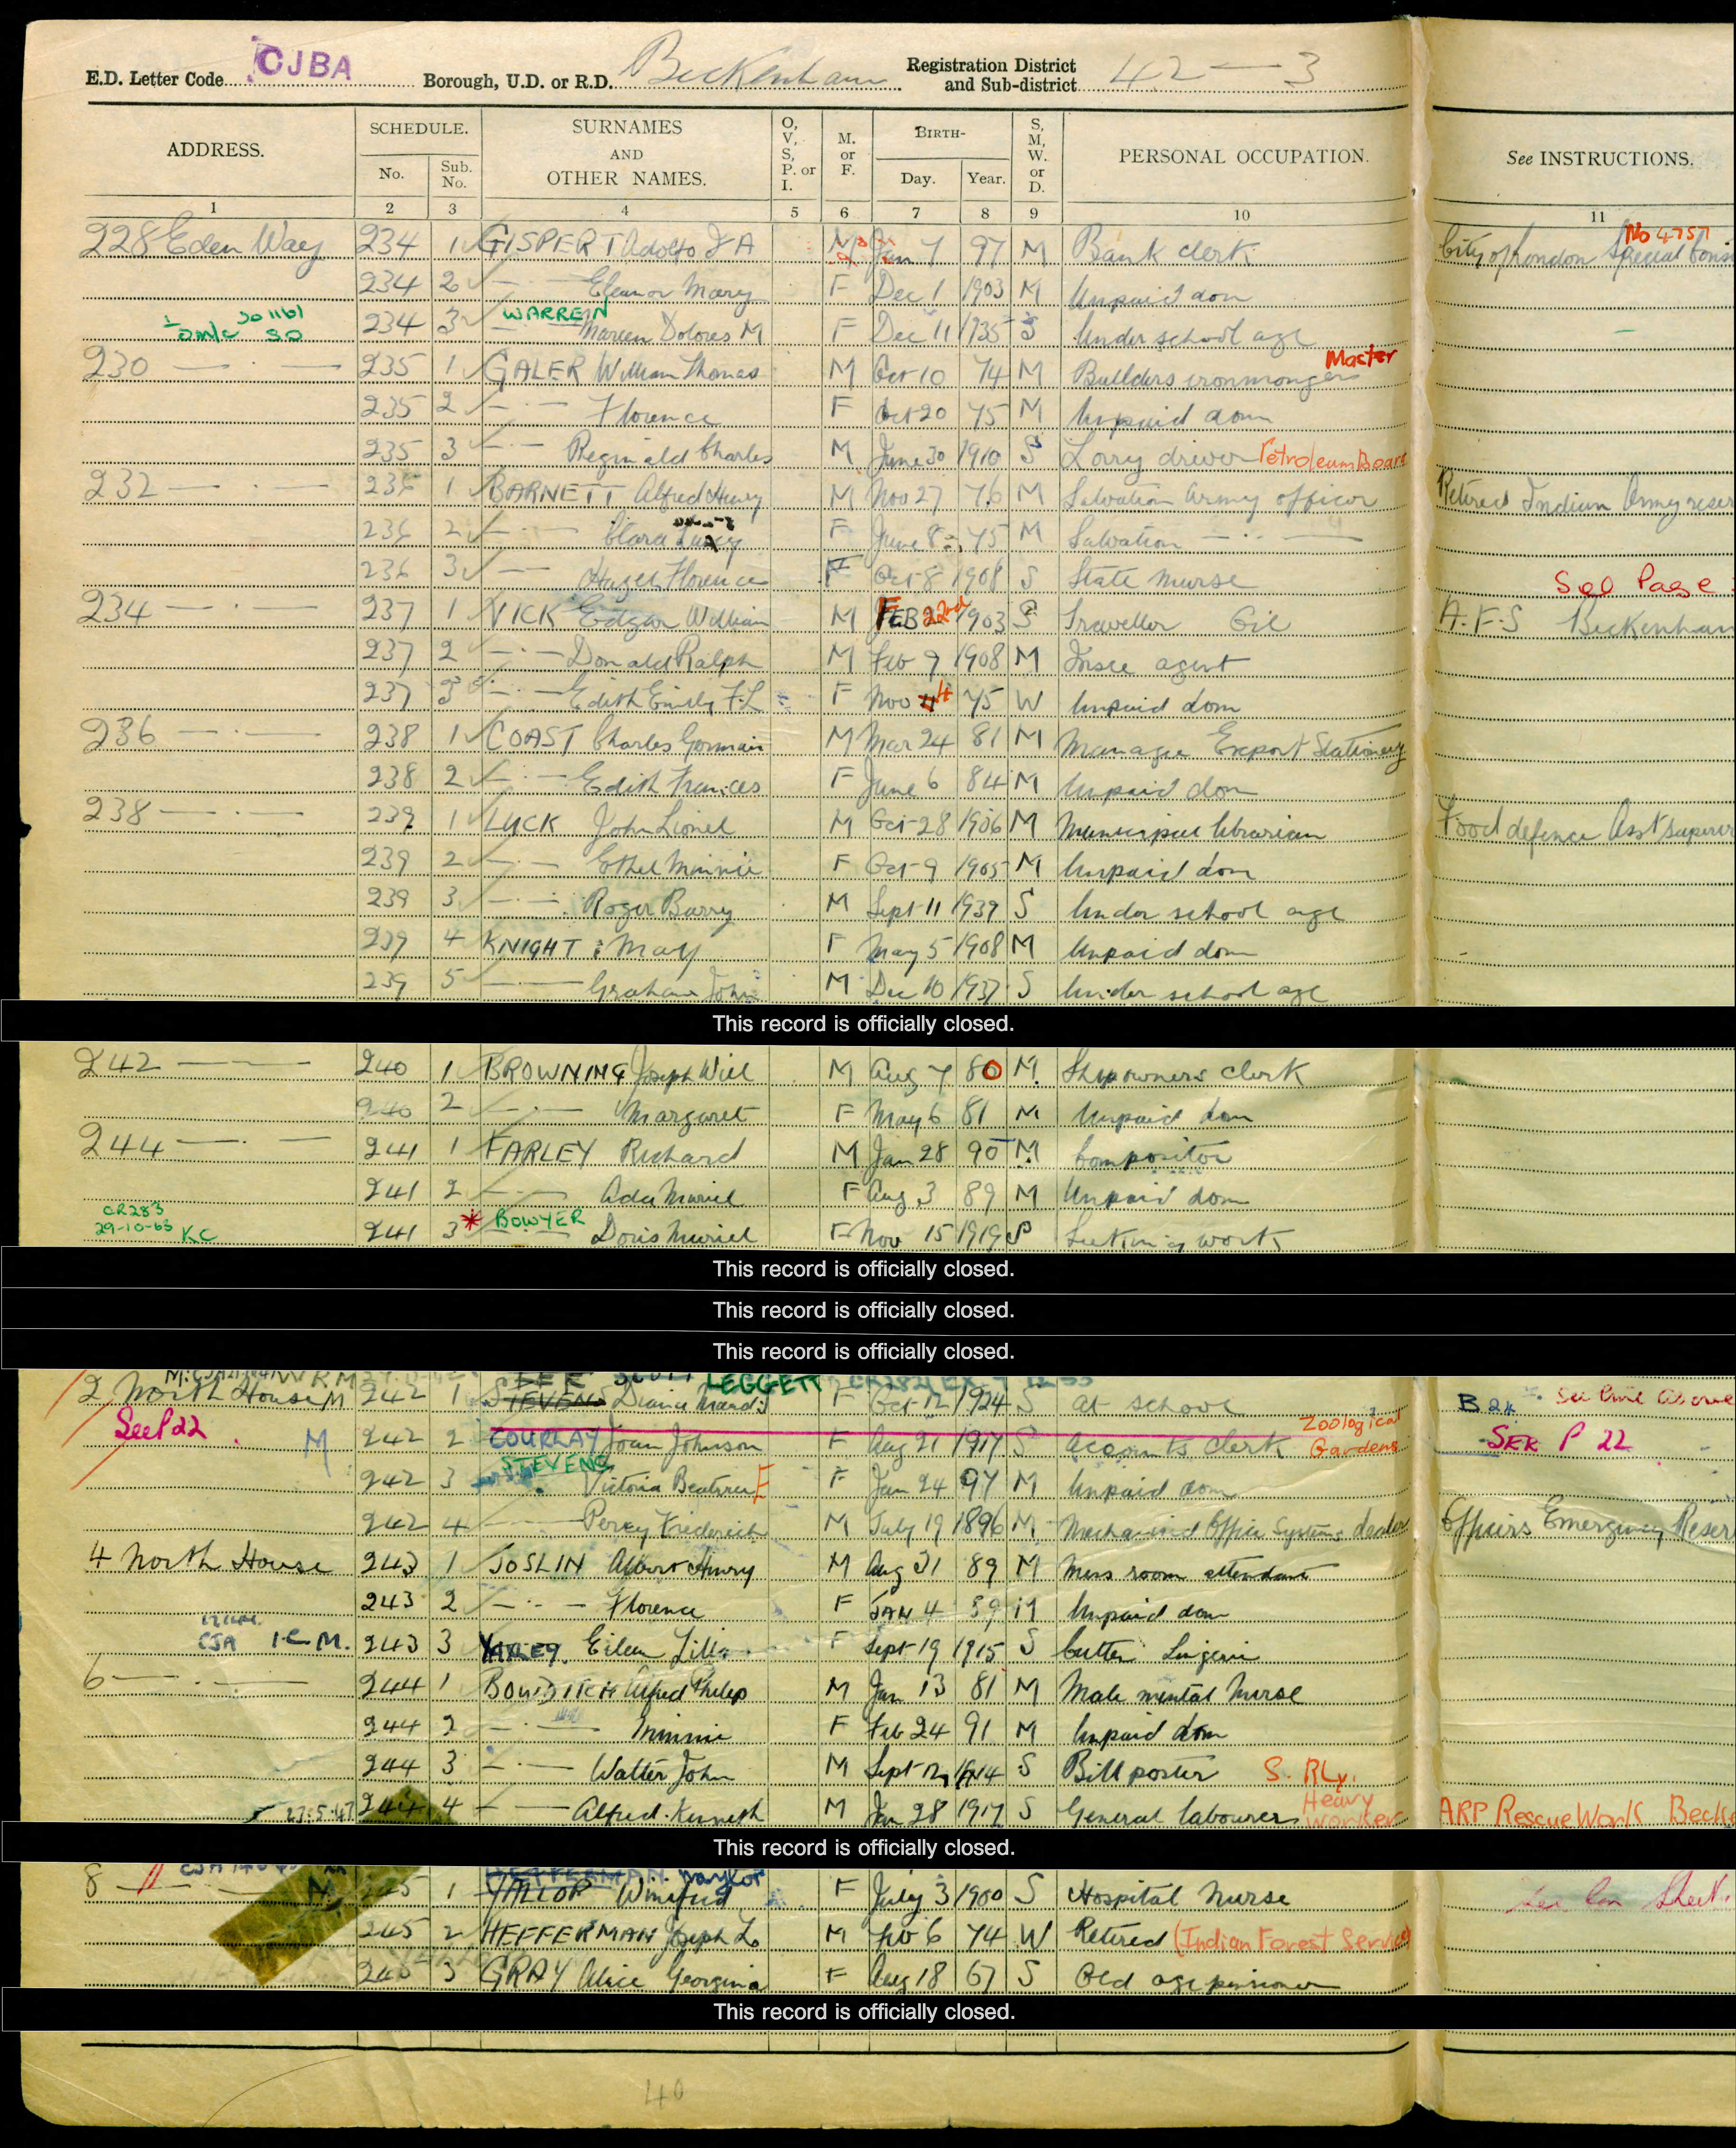 E.D. Letter Code CJBA Borough, U.D. or R.D. Beckenham Registration District and Sub-district 42 — 3
ADDRESS. SCHEDULE. No. Sub. No. SURNAMES AND OTHER NAMES. O, V, S, P. or I. M. or F. BIRTH- Day. Year. S, M, W. or D. PERSONAL OCCUPATION. See INSTRUCTIONS.
1 2 3 4 5 6 7 8 9 10 11
No 4757
228 Eden Way 234 1 GISPERT Adolfo J A M Jan 7 97 M Bank clerk City of London Special Cons
234 2 — · — Eleanor Mary F Dec 1 1903 M Unpaid dom
301161 SO WARREN
234 3 — Mareen Dolores M F Dec 11 1935 S Under school age
230 — · — 235 1 GALER William Thomas M Oct 10 74 M Builders ironmonger Master
235 2 — · — Florence F Oct 20 75 M Unpaid dom
235 3 — · — Reginald Charles M June 30 1910 S Lorry driver Petroleum Board
232 — · — 236 1 BARNETT Alfred Henry M Nov 27 76 M Salvation Army officer Retired Indian Army reser
236 2 — · — Clara Lucy F June 8 75 M Salvation — · —
236 3 — · — Hazel Florence F Oct 8 1908 S State Nurse See Page
234 — · — 237 1 VICK Edgar William M FEB 22nd 1903 S Traveller Oil A.F.S Beckenham
237 2 — · — Donald Ralph M Feb 9 1908 M Insce agent
237 3 — · — Edith Emily F.L F Nov 4 75 W Unpaid dom
236 — · — 238 1 COAST Charles Gorman M Mar 24 81 M Manager Export Stationery
238 2 — · — Edith Frances F June 6 84 M Unpaid dom
238 — · — 239 1 LUCK John Lionel M Oct 28 1906 M Municipal librarian Food defence Asst Superv
239 2 — · — Ethel Minnie F Oct 9 1905 M Unpaid dom
239 3 — · — Roger Barry M Sept 11 1939 S Under school age
239 4 KNIGHT : May F May 5 1908 M Unpaid dom
239 5 — · — Graham John M Dec 10 1937 S Under school age
This record is officially closed.
242 — · — 240 1 BROWNING Joseph Will M Aug 7 80 M Shipowners clerk
240 2 — · — Margaret F May 6 81 M Unpaid dom
244 — · — 241 1 FARLEY Richard M Jan 28 90 M Compositor
241 2 — · — Ada Muriel F Aug 3 89 M Unpaid dom
CR283 BOWYER
29-10-63 KC 241 3 — Doris Muriel F Nov 15 1919 S Seeking work
This record is officially closed.
This record is officially closed.
This record is officially closed.
LEGGETT
2 North House M 242 1 STEVENS Diana Mardi F Oct 12 1924 S At school See line above
See P 22 M 242 2 COURLAY Joan Johnson F Aug 21 1917 S Accounts clerk Zoological Gardens SEE P 22
STEVENS
242 3 Victoria Beatrice F Jan 24 97 M Unpaid dom
242 4 — Percy Frederick M July 19 1896 M Mechanised Office Systems dealer Officers Emergency Reser
4 North House 243 1 JOSLIN Albert Henry M Aug 31 89 M Mess room attendant
243 2 — · — Florence F JAN 4 89 M Unpaid dom
CJA 243 3 YARLEY Eileen F Sept 19 1915 S Cutter Lingerie
6 — · — 244 1 BOWDITCH Alfred Philip M Jan 13 81 M Male mental Nurse
244 2 — · — Minnie F Feb 24 91 M Unpaid dom
244 3 — · — Walter John M Sept 12 1914 S Bill poster S. RLy.
27.5.47 244 4 — · — Alfred Kenneth M Jan 28 1917 S General labourer Heavy worker ARP Rescue Work Beck
This record is officially closed.
8 — · — 245 1 YALLOP Winifred F July 3 1900 S Hospital Nurse
245 2 HEFFERMAN Joseph L M Feb 6 74 W Retired (Indian Forest Service)
245 3 GRAY Alice Georgina F Aug 18 67 S Old age pensioner
This record is officially closed.
40